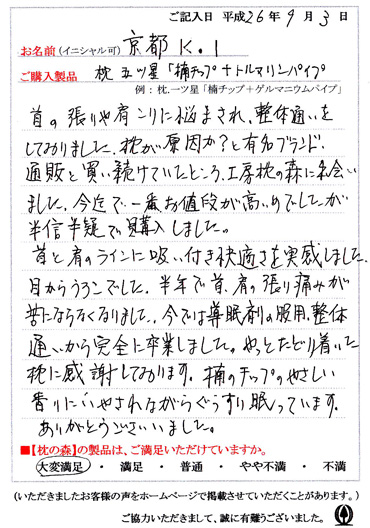 ご記入日 平成26年9月3日
お名前(イニシャル可) 京都 K.I
ご購入製品 枕 五ツ星「楠チップ+トルマリンパイプ
例:枕.一ツ星「楠チップ+ゲルマニウムパイプ」
首の張りや肩こりに悩まされ、整体通いを
しておりました。枕が原因か?と有名ブランド、
通販と買い続けていたところ、工房枕の森に出会い
ました。今迄で一番お値段が高いめでしたが
半信半疑で購入しました。
首と肩のラインに吸い付き快適さを実感しました。
目からうろこでした。半年で首、肩の張り痛みが
苦にならなくなりました。今では導眠剤の服用、整体
通いから完全に卒業しました。やっとたどり着いた
枕に感謝しております。楠のチップのやさしい
香りにいやされながらぐっすり眠っています。
ありがとうございました。
■【枕の森】の製品は、ご満足いただけていますか。
大変満足 ・ 満足 ・ 普通 ・ やや不満 ・ 不満
(いただきましたお客様の声をホームページで掲載させていただくことがあります。)
ご協力いただきまして、誠に有難うございました。